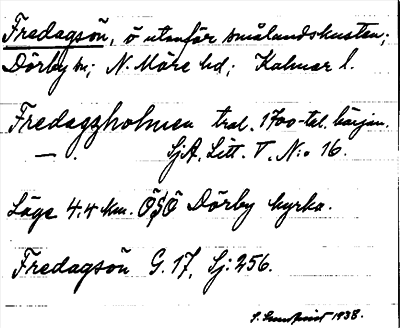 Fredagsön, ö utanför smålandskusten;
Dörby sn; N. Möre hd; Kalmar l.
Fredagzholmen tral. 1700-tal. början.
— . SjA. Litt. V. N:o 16.
Läge 4.4 km. ÖSÖ Dörby kyrka.
Fredagsön G. 17, Sj: 256.
1938.